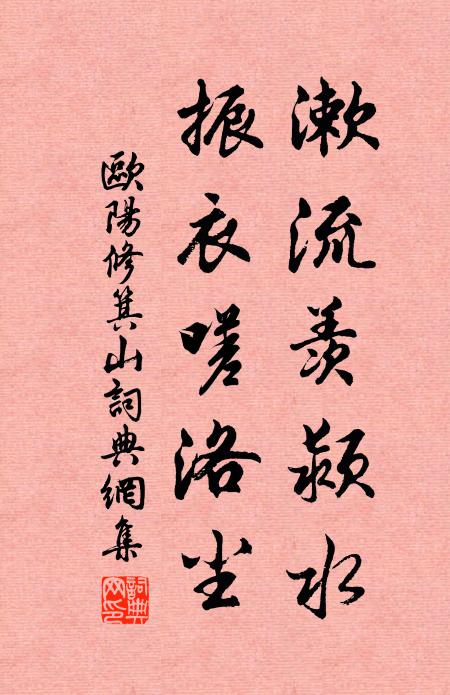 漱流羨潁水
振衣嗟洛尘
歐陽修箕山詞典網集
詞典
网印